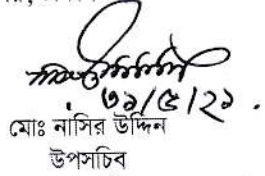 ৩১/৫/২১.
মোঃ নাসির উদ্দিন
উপসচিব